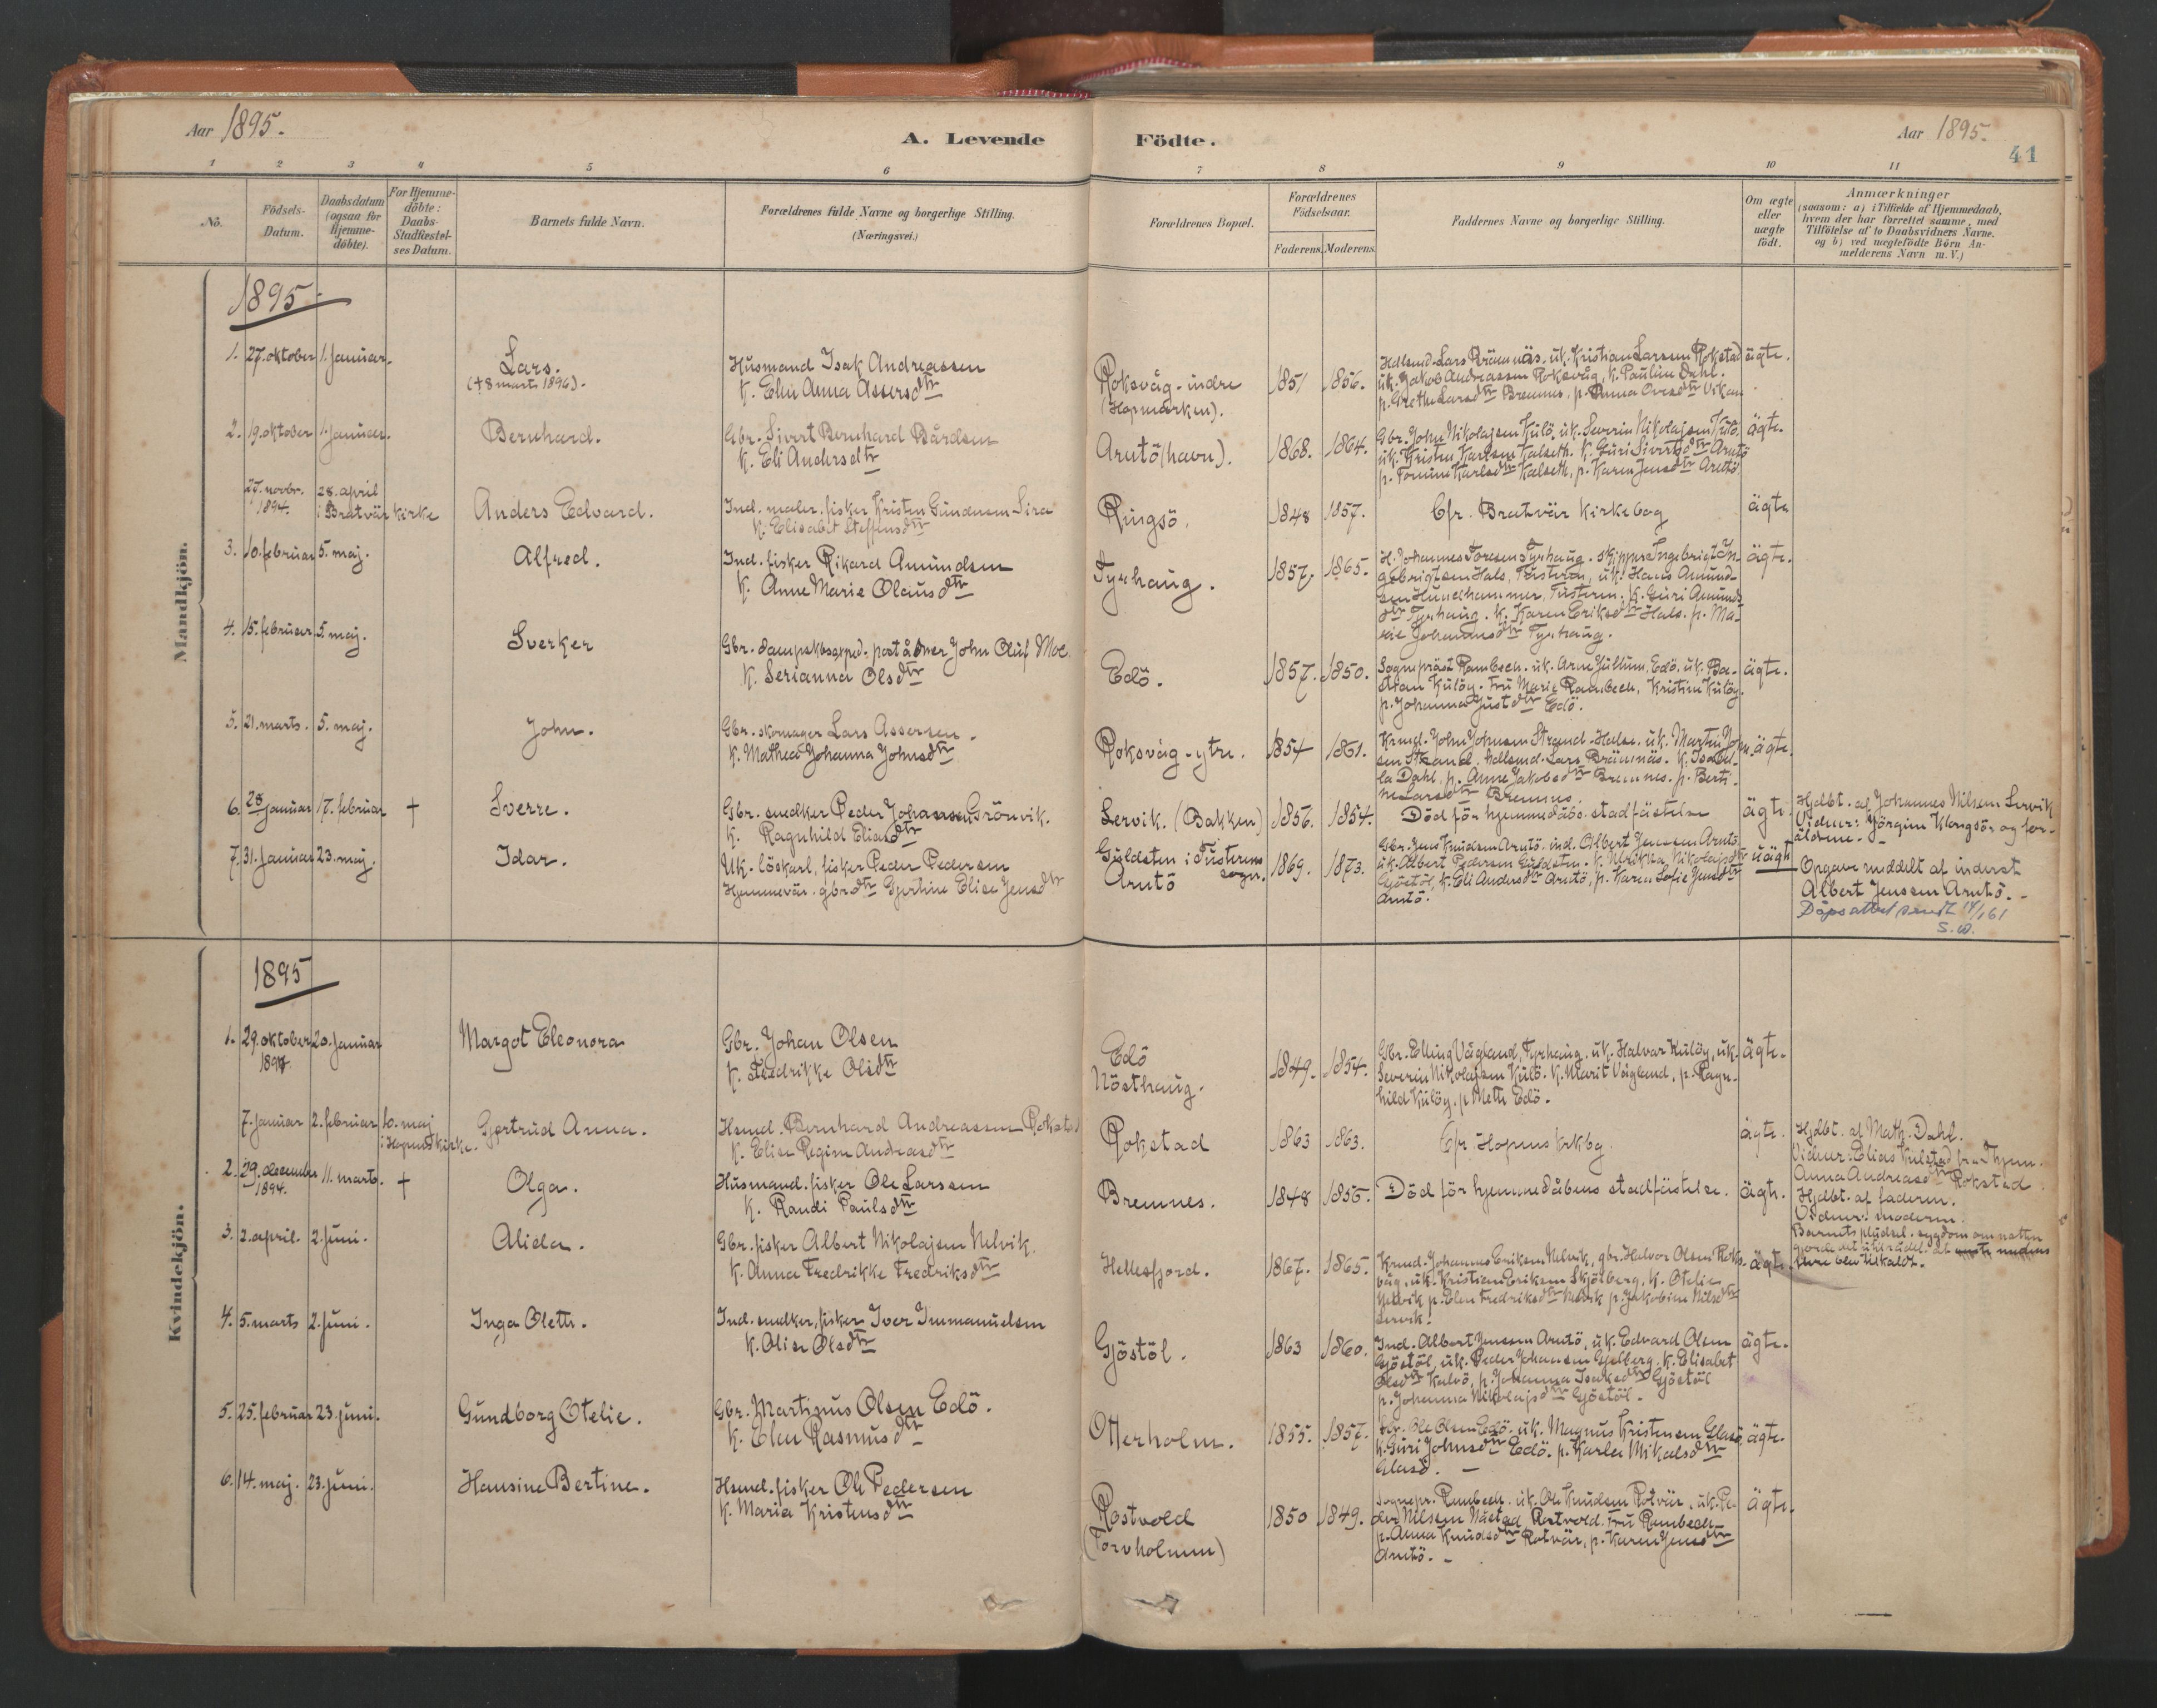 Aar 1895.
A. Levende Födte.
Aar 1895.
41
1 2 3 4 5 6 7 8 9 10 11
No.
Födsels-Datum.
Daabsdatum (ogsaa for Hjemme-döbte).
For Hjemme-döbte: Daabs-Stadfæstel-ses Datum.
Barnets fulde Navn.
Forældrenes fulde Navne og borgerlige Stilling.
(Næringsvei.)
Forældrenes Bopæl.
Forældrenes Födselsaar.
Faderens. Moderens.
Faddernes Navne og borgerlige Stilling.
Om ægte eller uægte födt.
Anmærkninger
(saasom: a) i Tilfælde af Hjemmedaab, hvem der har forrettet samme, med Tilföielse af to Daabsvidners Navne. og b) ved uægtefödte Börn An-melderens Navn m.V.)
Mandkjön.
1895
1. 27. oktober 1. januar. Lars. (+ 8 marts 1896). Husmand Isak Andreassen
K. Elen Anna Assersdtr
Roksvåg-indre
(Hopmarken).
1851 1856.
Hellsmd. Lars Brämnäs. uk. Kristian Larsen Rokstad
uk. Jakob Andreassen Roksvåg, k. Pauline Dahl.
p. Grethe Larsdtr Bremnes, p. Anna Ovesdtr Vikan
ägte.
2. 19. oktober 1. januar. Bernhard. Gbr. Sivert Bernhard Bårdsen
K. Eli Andersdtr
Arntö (havn).
1868. 1864.
Gbr. John Nikolajsen Kulö, uk. Severin Nikolajsen Kulö,
uk. Kristen Karlsen Kalseth. K. Guri Sivertsdtr Arntö
p. Karlsdtr Kalseth, p. Karen Jensdtr Arntö
ägte.
27. novbr. 1894. 28. april i Bratvär kirke Anders Edvard. Ind. maler. fisker Kristen Gundersen Sira
K. Elisabet Steffensdtr
Ringsö.
1848 1857.
Cfr. Bratvär Kirkebog
ägte
3. 10. februar 5. maj. Alfred. Ind. fisker Rikard Amundsen
K. Anne Marie Olausdtr
Tyrhaug.
1857. 1865.
H. Johannes Toresen Tyrhaug. Skipper Ingebrigt In-
gebrigtsen Hals, Tusteren, uk. Hans Amund-
sen Hundhammer, Tusteren. K. Guri Amunds
dtr Tyrhaug. K. Karen Eriksdtr Hals. p. Ma-
rie Johannesdtr Tyrhaug.
ägte.
4. 15. februar 5. maj. Sverker Gbr. dampskbsexped. poståbner John Oluf Moe
K. Serianna Olsdtr
Edö.
1857. 1850.
Sognepräst Rambech. uk. Arne Jullum, Edö, uk. Ba-
stian Kulöy. Fru Marie Rambech, Kristine Kulöy.
p. Johanna Justdtr Edö.
ägte.
5. 21. marts. 5. maj. John. Gbr. skomager Lars Assersen.
K. Mathea Johanna Johnsdtr
Roksvåg-ytre.
1854 1861.
Krmd. John Johnsen Strand-Halse. uk. Martin John-
sen Strand. hellsmd. Lars Brämnäs. K. Isabel-
la Dahl, p. Anne Jakobsdtr Bremnes. p. Berti-
ne Larsdtr Bremnes.
ägte.
6. 28 januar 17. februar + Sverre. Gbr. snedker Peder Johansen Grönvik.
K. Ragnhild Eliasdtr
Lervik. (Bakken)
1856. 1854.
Död för hjemmedåbs. stadfästelse
ägte.
Hjdbt. af Johannes Nilsen Lervik
Vidner: Jörgine Klengsör og for-
äldrene.
7. 31. januar 23. maj. Idar. Uk. löskarl, fisker Peder Pedersen
Hjemmevär. gbrdtr Gjertine Elise Jensdtr
Guldsten i Tusterens sogn.
Arntö
1869. 1873.
Gbr. Jens Knudsen Arntö. ind. Albert Jenssen Arntö.
uk. Albert Pedersen Guldsten. K. Ulrikka Nikolajsdtr
Gjöstöl, K. Eli Andersdtr Arntö, p. Karen Sofie Jensdtr
Arntö.
uägte
Opgave meddelt af inderst
Albert Jenssen Arntö.
Dåpsattest sendt 14/1 61
S. W.
Kvindekjön.
1895
1. 29. oktober 1894. 20. januar Margot Eleonora Gbr. Johan Olsen
K. Fredrikke Olsdtr
Edö
Nösthaug.
1849. 1854.
Gbr. Elling Vågland, Tyrhaug. uk. Halvar Kulöy, uk.
Severin Nikolajsen Kulö. K. Marit Vågland, p. Ragn-
hild Kulöy, p. Mette Edö.
ägte.
7. januar 2. februar 10. maj i Hopens kirke. Gjertrud Anna. Hsmd. Bernhard Andreassen Rokstad
K. Elise Regine Andreasdtr
Rokstad
1863 1863.
Cfr. Hopens krkbg.
ägte.
Hjdbt. af Math. Dahl.
Vidner: Elias Kulstad
Anna Andreasdtr Rokstad.
2. 29. december 1894. 11. marts. + Olga. Husmand. fisker Ole Larsen
K. Randi Paulsdtr
Bremnes.
1848 1856.
Död för hjemmedåbens stadfästelse.
ägte.
Hjdbt. af faderen.
Vidner: moderen.
Barnets plüdsel. sygdom om natten
gjorde det
blev tilkaldt.
3. 2. april. 2. juni. Alida. Gbr. fisker Albert Nikolajsen Nelvik.
K. Anna Fredrikke Fredriksdtr
Hellesfjord.
1867. 1865.
Krmd. Johannes Eriksen Nelvik, gbr. Halvor Olsen Roks-
våg, uk. Kristian Eriksen Skjölberg, K. Otelie
Nelvik p. Elen Fredriksdtr Nelvik p. Jakobine Nilsdtr
Lervik.
ägte.
4. 5. marts 2. juni. Inga Olette. Ind. snedker, fisker Iver Immanuelsen
K. Olise Olsdtr
Gjöstöl.
1863 1860.
Ind. Albert Jenssen Arntö, uk. Edvard Olsen
Gjöstöl, uk. Peder Johansen Gjelberg. K. Elisabet
Olsdtr Kalvö, p. Johanna Isaksdtr Gjöstöl
p. Johanna Nikolajsdtr Gjöstöl.
ägte.
5. 25. februar 23. juni. Gundborg Otelie. Gbr. Martinus Olsen Edö.
K. Elen Rasmusdtr
Otterholm.
1855. 1857.
Gbr. Ole Olsen Edö. uk. Magnus Kristensen Glasö
K. Guri Johnsdtr Edö. p. Karlea Mikalsdtr
Glasö.
ägte.
6. 14. maj. 23. juni. Hansine Bertine. Hsmd. fisker Ole Pedersen
K. Maria Kristensdtr
Rostvold
(Torvholmen)
1850 1849.
Sognepr. Rambech. uk. Ole Knudsen Rotvär, uk. Pe-
der Nilsen Nästad Rostvold. Fru Rambech
p. Anna Knudsdtr Rotvär, p. Karen Jensdtr
Arntö.
ägte.